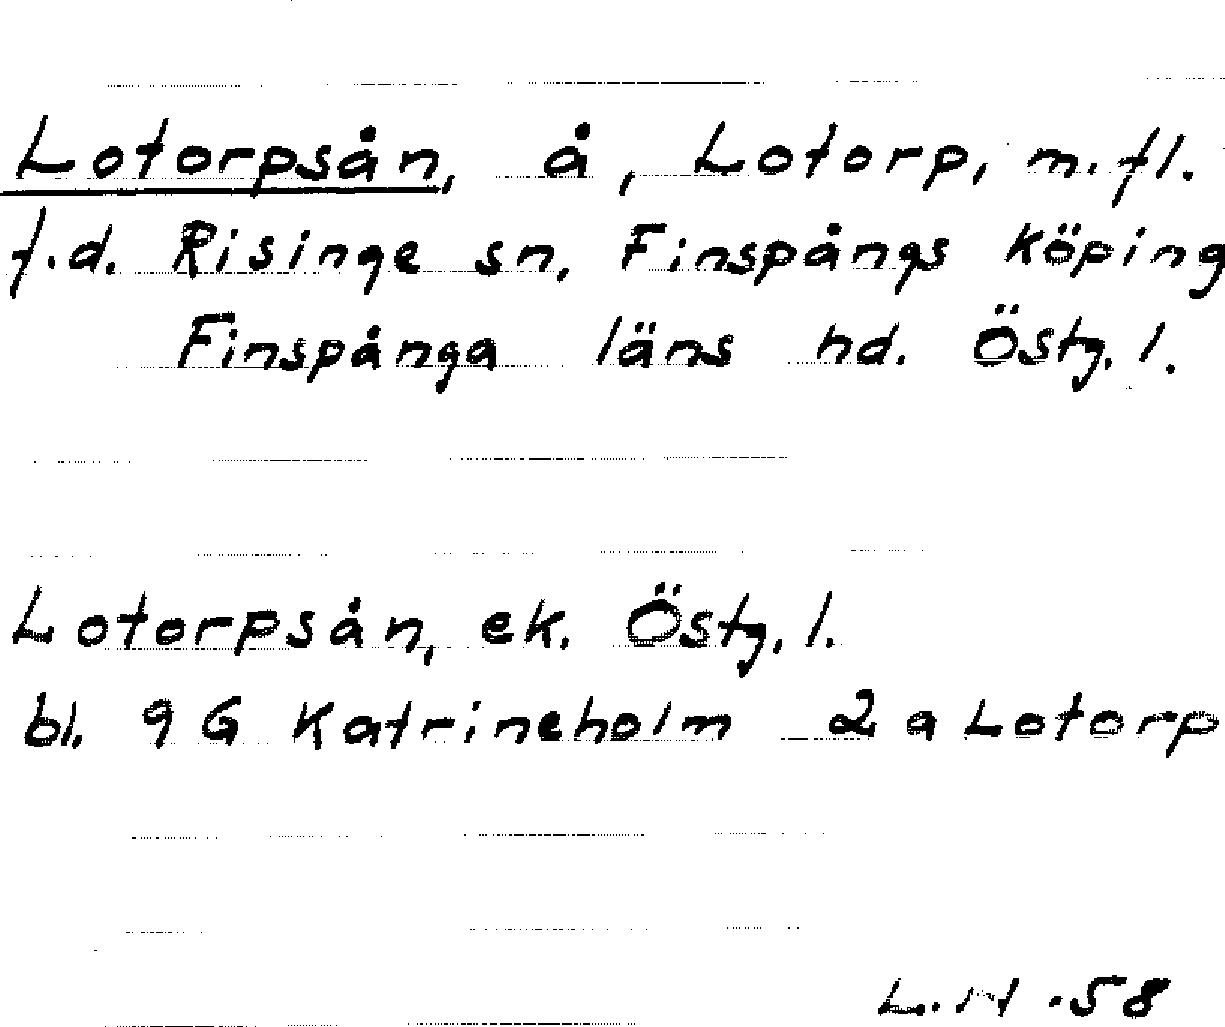 Lotorpsån, å, Lotorp, m.fl.
f.d. Risinge sn, Finspångs köping
Finspånga läns hd. Östg. l.
Lotorpsån, ek. Östg. l.
bl. 9 G Katrineholm 2 a Lotorp
L. H .58